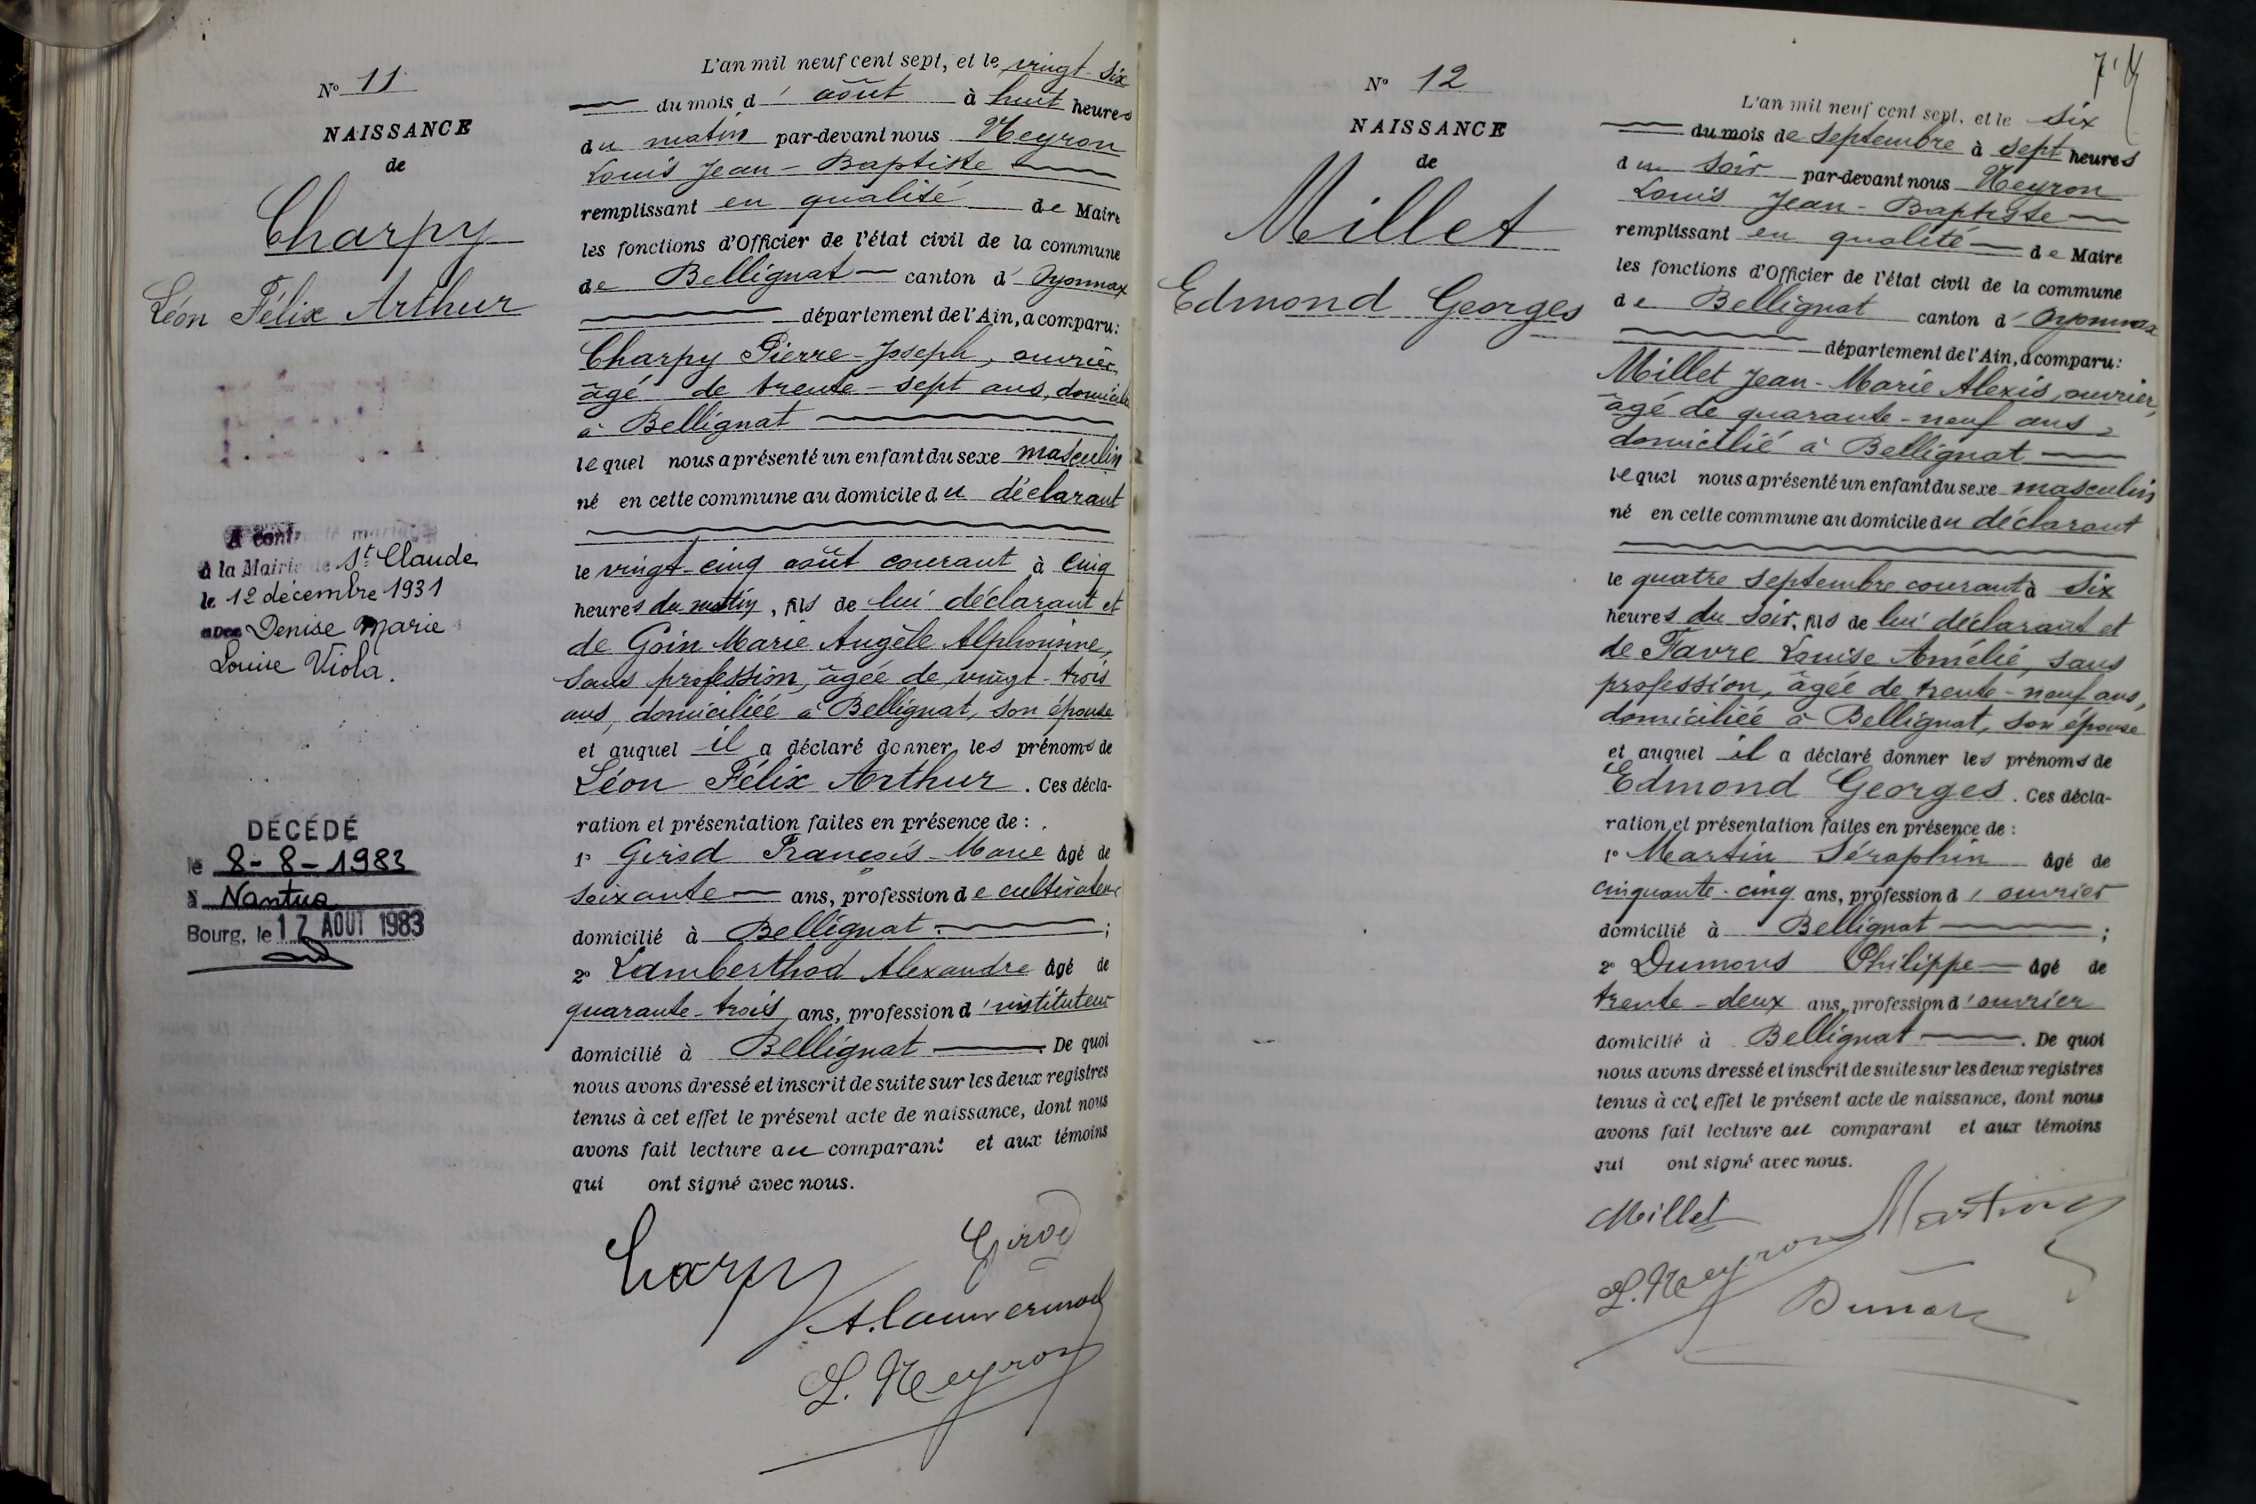 N° 11
NAISSANCE
de
Charpy
Léon Félix Arthur
A contracté mariage
à la Mairie de St Claude
le 12 décembre 1931
avec Denise Marie
Louise Viola.
DÉCÉDÉ
le 8-8-1983
à Nantua
Bourg, le 17 AOUT 1983
L'an mil neuf cent sept, et le vingt-six
du mois d'août à huit heures
du matin par-devant nous Neyron
Louis Jean-Baptiste
remplissant en qualité de Maire
les fonctions d'Officier de l'état civil de la commune
de Bellignat canton d'Oyonnax
département de l'Ain, a comparu:
Charpy Pierre-Joseph, ouvrier,
âgé de trente-sept ans, domicilié
à Bellignat
lequel nous a présenté un enfant du sexe masculin
né en cette commune au domicile du déclarant
le vingt-cinq août courant à cinq
heures du matin, fils de lui déclarant et
de Goin Marie Angèle Alphonsine,
sans profession, âgée de vingt-trois
ans, domiciliée à Bellignat, son épouse
et auquel il a déclaré donner les prénoms de
Léon Félix Arthur. Ces décla-
ration et présentation faites en présence de:
1° Girod François-Marie âgé de
soixante ans, profession de cultivateur
domicilié à Bellignat;
2° Lamberthod Alexandre âgé de
quarante-trois ans, profession d'instituteur
domicilié à Bellignat. De quoi
nous avons dressé et inscrit de suite sur les deux registres
tenus à cet effet le présent acte de naissance, dont nous
avons fait lecture au comparant et aux témoins
qui ont signé avec nous.
Charpy
Girod
L. Neyron
N° 12
NAISSANCE
de
Millet
Edmond Georges
L'an mil neuf cent sept, et le six
du mois de septembre à sept heures
du soir par-devant nous Neyron
Louis Jean-Baptiste
remplissant en qualité de Maire
les fonctions d'Officier de l'état civil de la commune
de Bellignat canton d'Oyonnax
département de l'Ain, a comparu:
Millet Jean-Marie Alexis, ouvrier,
âgé de quarante-neuf ans,
domicilié à Bellignat
lequel nous a présenté un enfant du sexe masculin
né en cette commune au domicile du déclarant
le quatre septembre courant à six
heures du soir, fils de lui déclarant et
de Favre Louise Amélie, sans
profession, âgée de trente-neuf ans,
domiciliée à Bellignat, son épouse
et auquel il a déclaré donner les prénoms de
Edmond Georges. Ces décla-
ration et présentation faites en présence de:
1° Martin Séraphin âgé de
cinquante-cinq ans, profession d'ouvrier
domicilié à Bellignat;
2° Dumons Philippe âgé de
trente-deux ans, profession d'ouvrier
domicilié à Bellignat. De quoi
nous avons dressé et inscrit de suite sur les deux registres
tenus à cet effet le présent acte de naissance, dont nous
avons fait lecture au comparant et aux témoins
qui ont signé avec nous.
Millet
Martin
L. Neyron